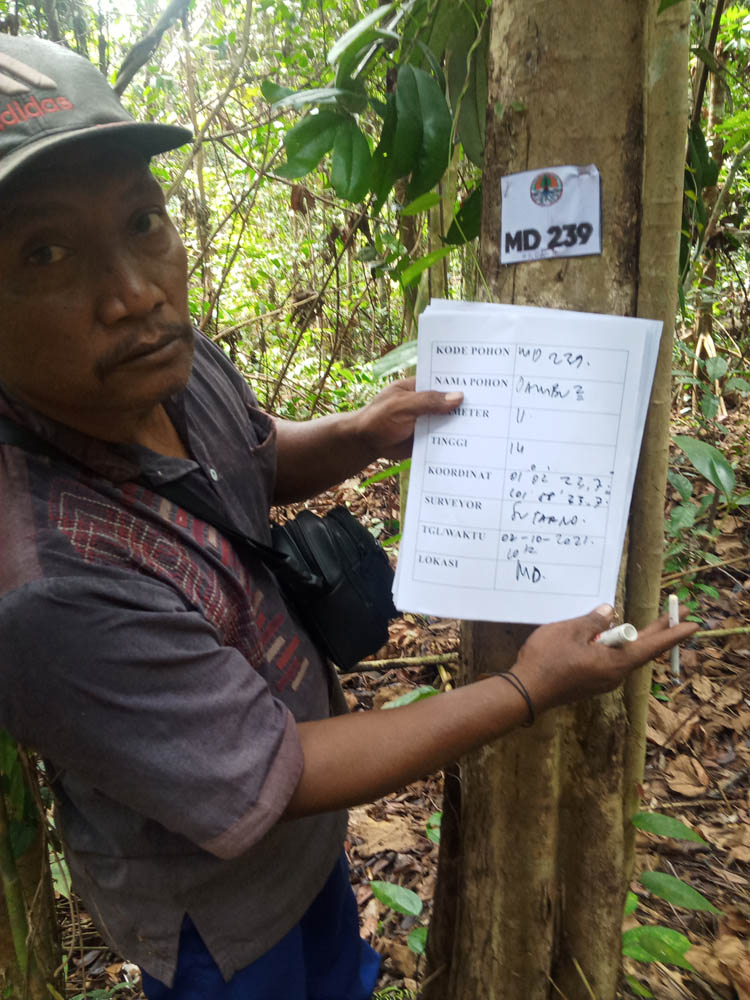 adidas
MD 239
KODE POHON MD 239.
NAMA POHON
DIAMETER 11.
TINGGI 14
KOORDINAT 01 02 23,7
101 08 33,7
SURVEYOR SUPARNO.
TGL/WAKTU 02-10-2021.
LOKASI MD.